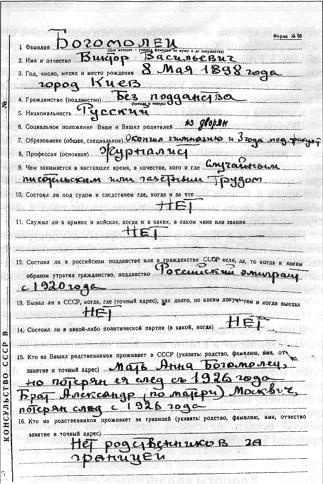 Форма № 96
1 Фамилия Богомолец
2. Имя и отчество Виктор Васильевич
3. Год, число, месяц и место рождения 8 Мая 1898 года
город Киев
4. Гражданство (подданство) Без подданства
5. Национальность Русский
6. Социальное положение Ваше и Ваших родителей из дворян
7. Образование (общее, специальное) Окончил гимназию и 3 года мед. факульт
8. Профессия (основная) Журналист
9. Чем занимается в настоящее время, в качестве, кого и где Случайным
писательским или газетным трудом
10. Состоял ли под судом и следствием где, когда и за что
НЕТ
11. Служил ли в армиях и войсках, когда и в каких, в каком чине или звании
НЕТ
12. Состоял ли в российском подданстве или в гражданстве СССР если, да, то когда и каким
образом утратил гражданство, подданство Российский эмигрант
с 1920 года
13. Бывал ли в СССР, когда, где (точный адрес), как долго, по каким документам и когда выехал
НЕТ
14. Состоял ли в какой-либо политической партии (в какой, когда) НЕТ
15. Кто из Ваших родственников проживает в СССР (указать: родство, фамилию, имя, от-
чество занятие и точный адрес) Мать Анна Богомолец,
но потерян ея след съ 1926 года
Брат Александр (по матери) Москвич,
потерян след с 1926 года
16. Кто из родственников проживает за границей (указать: родство, фамилию, имя, отчество
занятие и точный адрес)
Нет родственников за
границей
КОНСУЛЬСТВО СССР В
№